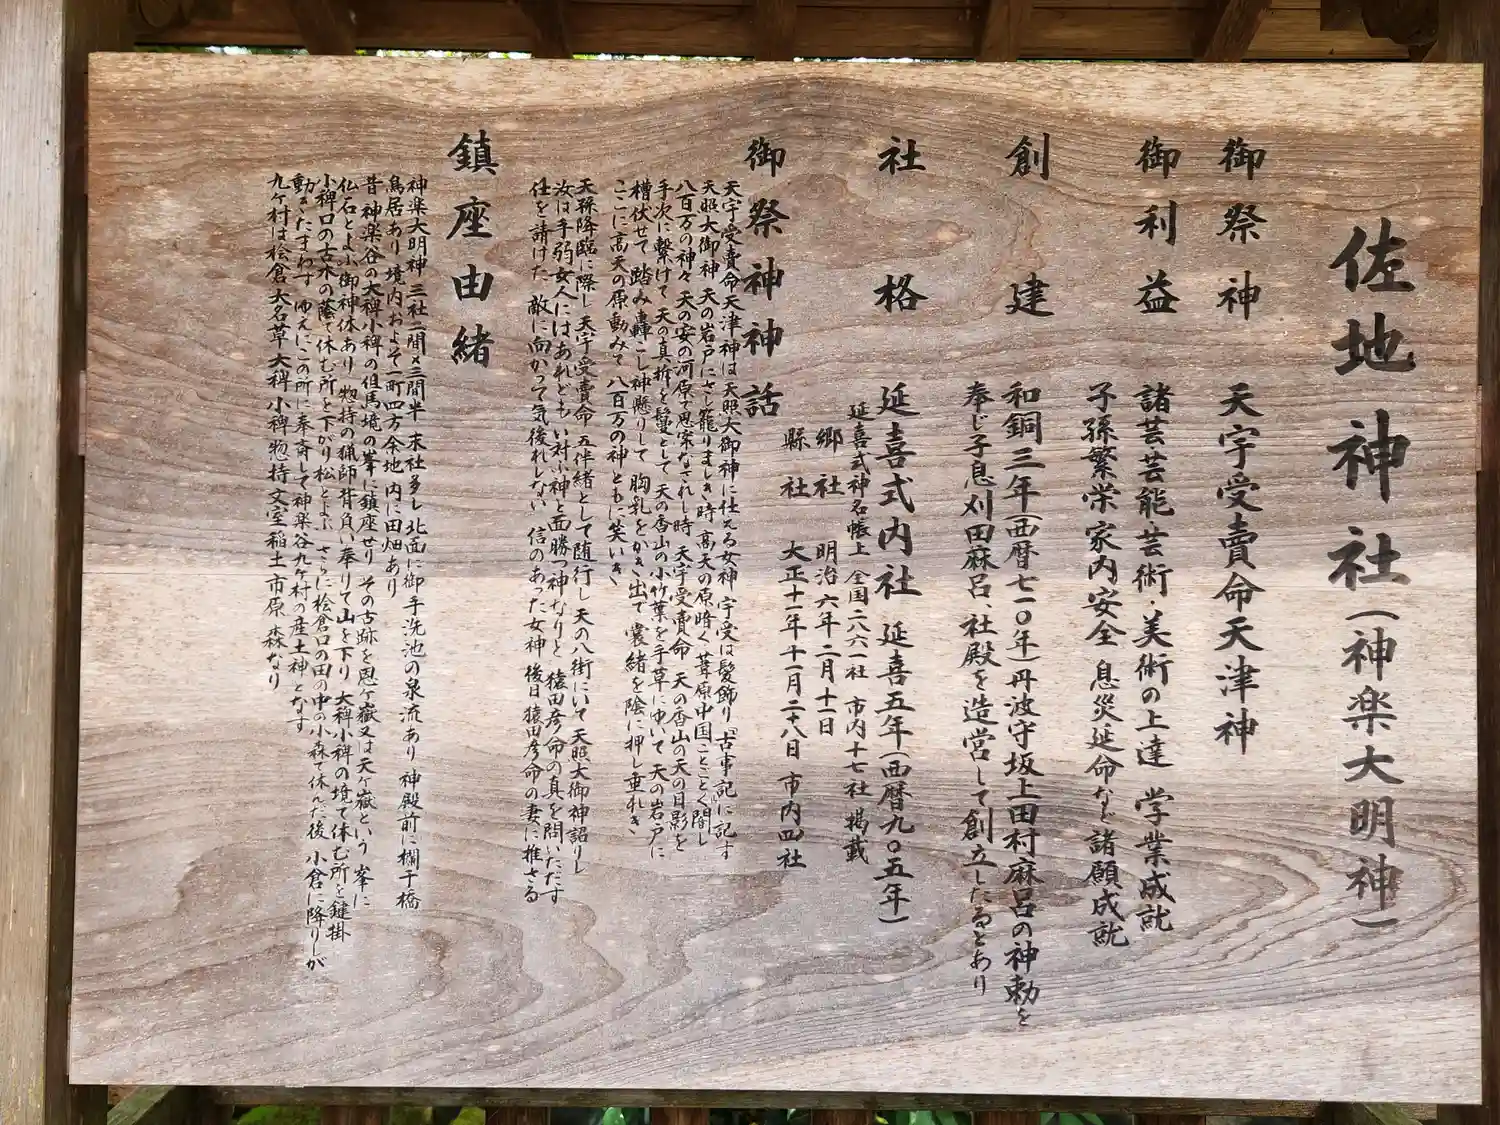 佐地神社(神楽大明神)
御祭神 天宇受賣命天津神
御利益 諸芸・芸能・芸術・美術の上達 学業成就
子孫繁栄 家内安全 息災延命など諸願成就
創建 和銅三年(西暦七一〇年)丹波守坂上田村麻呂の神勅を
奉じ子息刈田麻呂、社殿を造営して創立したるとあり
社格 延喜式内社 延喜五年(西暦九〇五年)
延喜式神名帳上 全国二八六一社 市内十七社 掲載
郷社 明治六年二月十一日
縣社 大正十一年十一月二十八日 市内四社
御祭神神話
天宇受賣命天津神は天照大御神に仕える女神 宇受は髪飾り『古事記』に記す
天照大御神 天の岩戸にさし籠りましき時 高天の原暗く 葦原中国ことごとく闇し
八百万の神々 天の安の河原で思案なされし時 天宇受賣命 天の香山の天の日影を
手次に繋けて 天の真拆を鬘として 天の香山の小竹葉を手草にゆいて 天の岩戸に
槽伏せて 踏み轟こし神懸りして 胸乳をかき出で 裳緒を陰に押し垂れき
ここに高天の原動みて 八百万の神ともに笑いき
天孫降臨に際し 天宇受賣命 五伴緒として随行し 天の八街にいて 天照大御神詔りし
汝は手弱女人にはあれどもい対ふ神と面勝つ神なりと 猿田彦命の真を問いただす
任を請けた 敵に向かって気後れしない 信のあった女神 後日猿田彦命の妻に推さる
鎮座由緒
神楽大明神 三社二間×三間半 末社多し 北面に御手洗池の泉流あり 神殿前に欄干橋
鳥居あり 境内およそ一町四方余地 内に田畑あり
昔 神楽谷の大稗小稗の但馬境の峯に鎮座せり その古跡を思ケ嶽又は天ケ嶽という 峯に
仏石とよぶ御神体あり 惣持の猟師背負い奉りて山を下り 大稗小稗の境で休む所を鍵掛
小稗口の古木の蔭で休む所を下がり松とよぶ さらに桧倉口の田の中の小森で休んだ後 小倉に降りしが
動きたまわず ゆえにこの所に奉斎して神楽谷九ケ村の産土神となす
九ケ村は桧倉 大名草 大稗 小稗 惣持 文室 稲土 市原 森なり